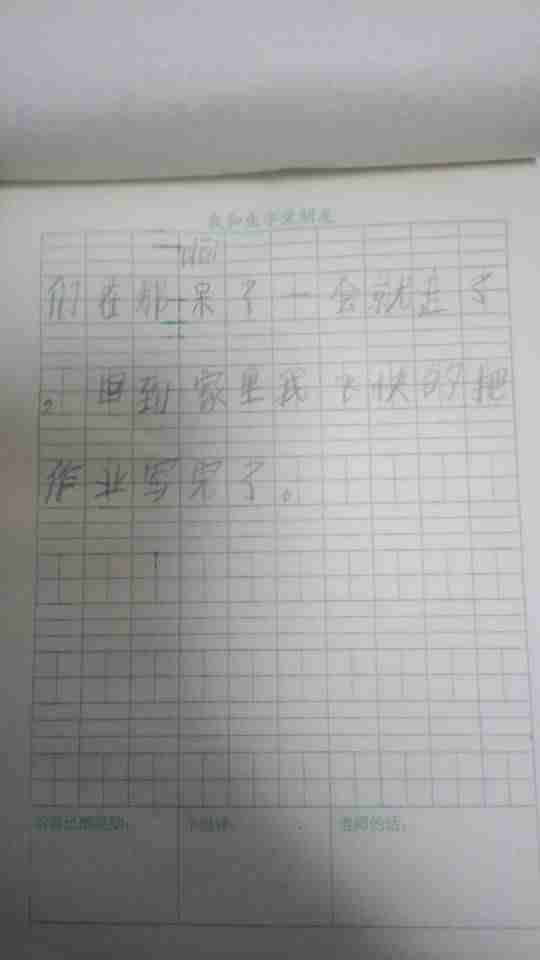 们在那呆了一会就走了
。回到家里我飞快的把
作业写完了。
老师的话：